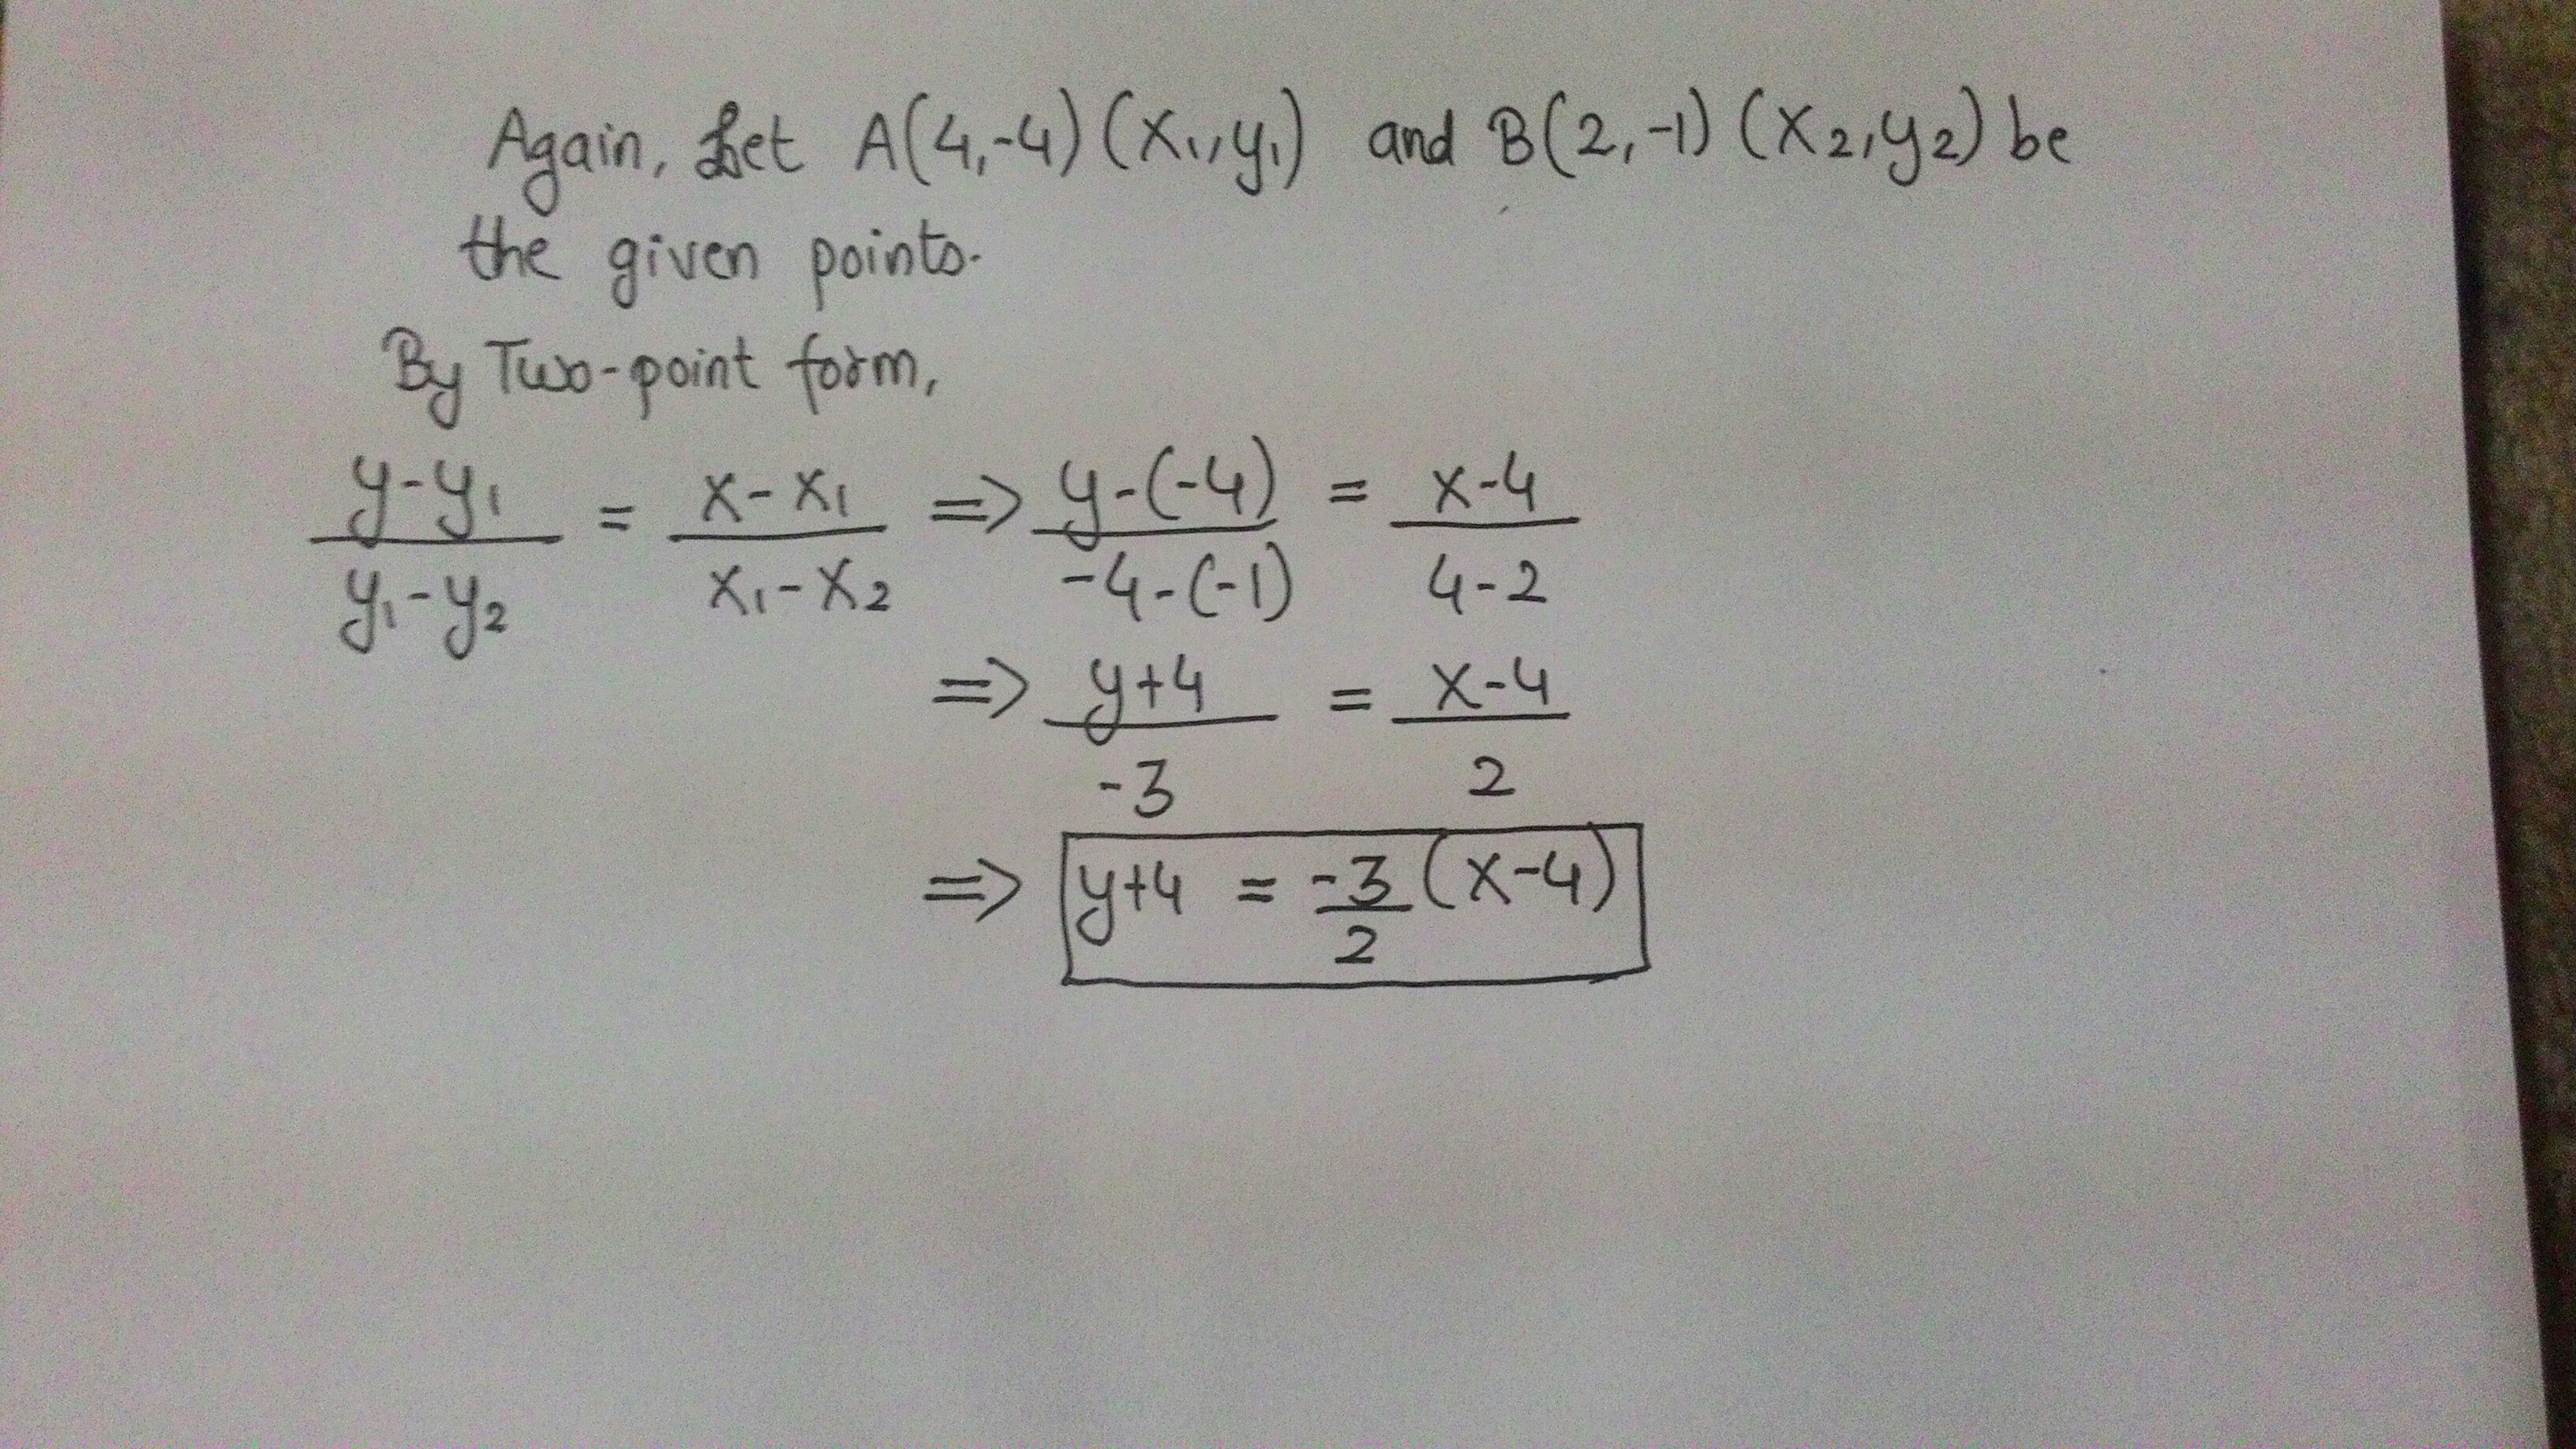 Again, Let A(4,-4) (x₁,y₁) and B(2,-1) (x₂,y₂) be
the given points.
By Two-point form,
(y-y₁)/(y₁-y₂) = (x-x₁)/(x₁-x₂) => (y-(-4))/(-4-(-1)) = (x-4)/(4-2)
=> (y+4)/(-3) = (x-4)/2
=> y+4 = -3/2 (x-4)